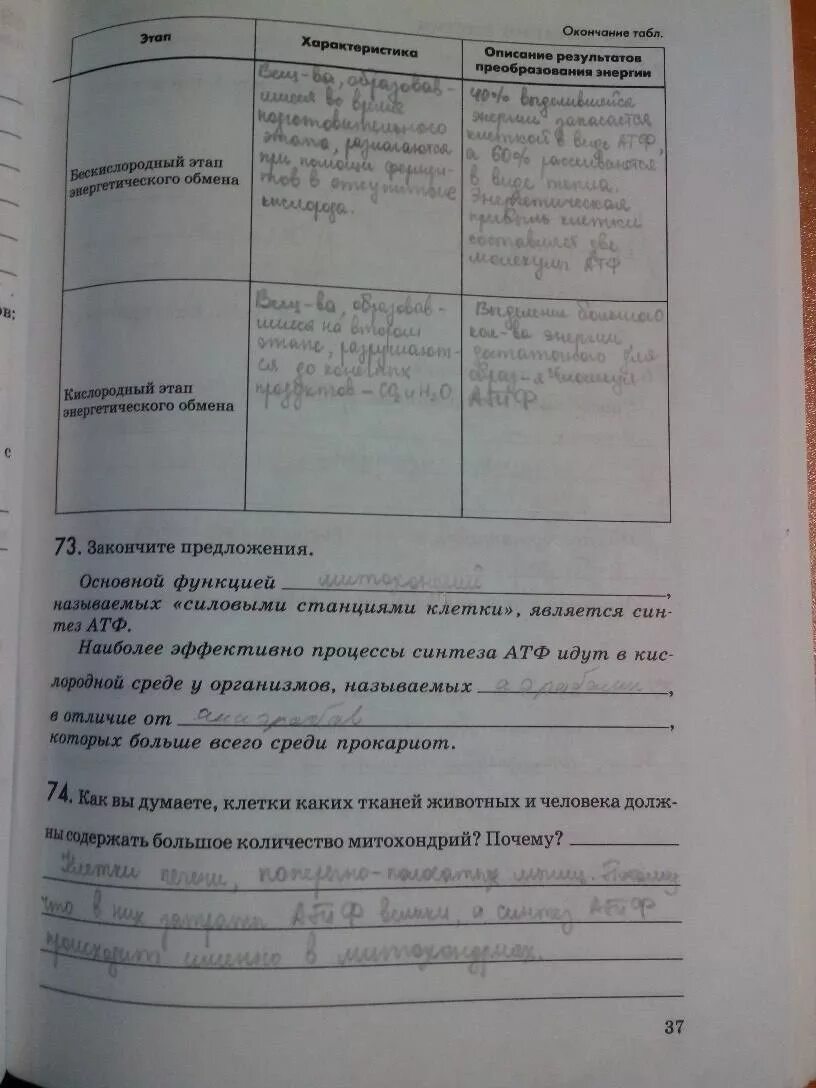 Окончание табл.
Этап
Характеристика
Описание результатов
преобразования энергии
Бескислородный этап
энергетического обмена
Вещ-ва, образовав-
шиеся во время
подготовительного
этапа, разлагаются
при помощи фермен-
тов в отсутствие
кислорода.
40% выделившейся
энергии запасается
клеткой в виде АТФ,
а 60% рассеиваются
в виде тепла.
Энергетическая
прибыль клетки
составляет две
молекулы АТФ
Кислородный этап
энергетического обмена
Вещ-ва, образовав-
шиеся на втором
этапе, разрушают-
ся до конечных
продуктов – CO2 и H2O
Выделение большого
кол-ва энергии,
достаточного для
образ-я молекул
АТФ.
ов;
с
73. Закончите предложения.
Основной функцией митохондрий,
называемых «силовыми станциями клетки», является син-
тез АТФ.
Наиболее эффективно процессы синтеза АТФ идут в кис-
лородной среде у организмов, называемых аэробами,
в отличие от анаэробов,
которых больше всего среди прокариот.
74. Как вы думаете, клетки каких тканей животных и человека долж-
ны содержать большое количество митохондрий? Почему?
Клетки печени, поперечно-полосатых мышц. Потому
что в них затраты АТФ велики, а синтез АТФ
происходит именно в митохондриях.
37